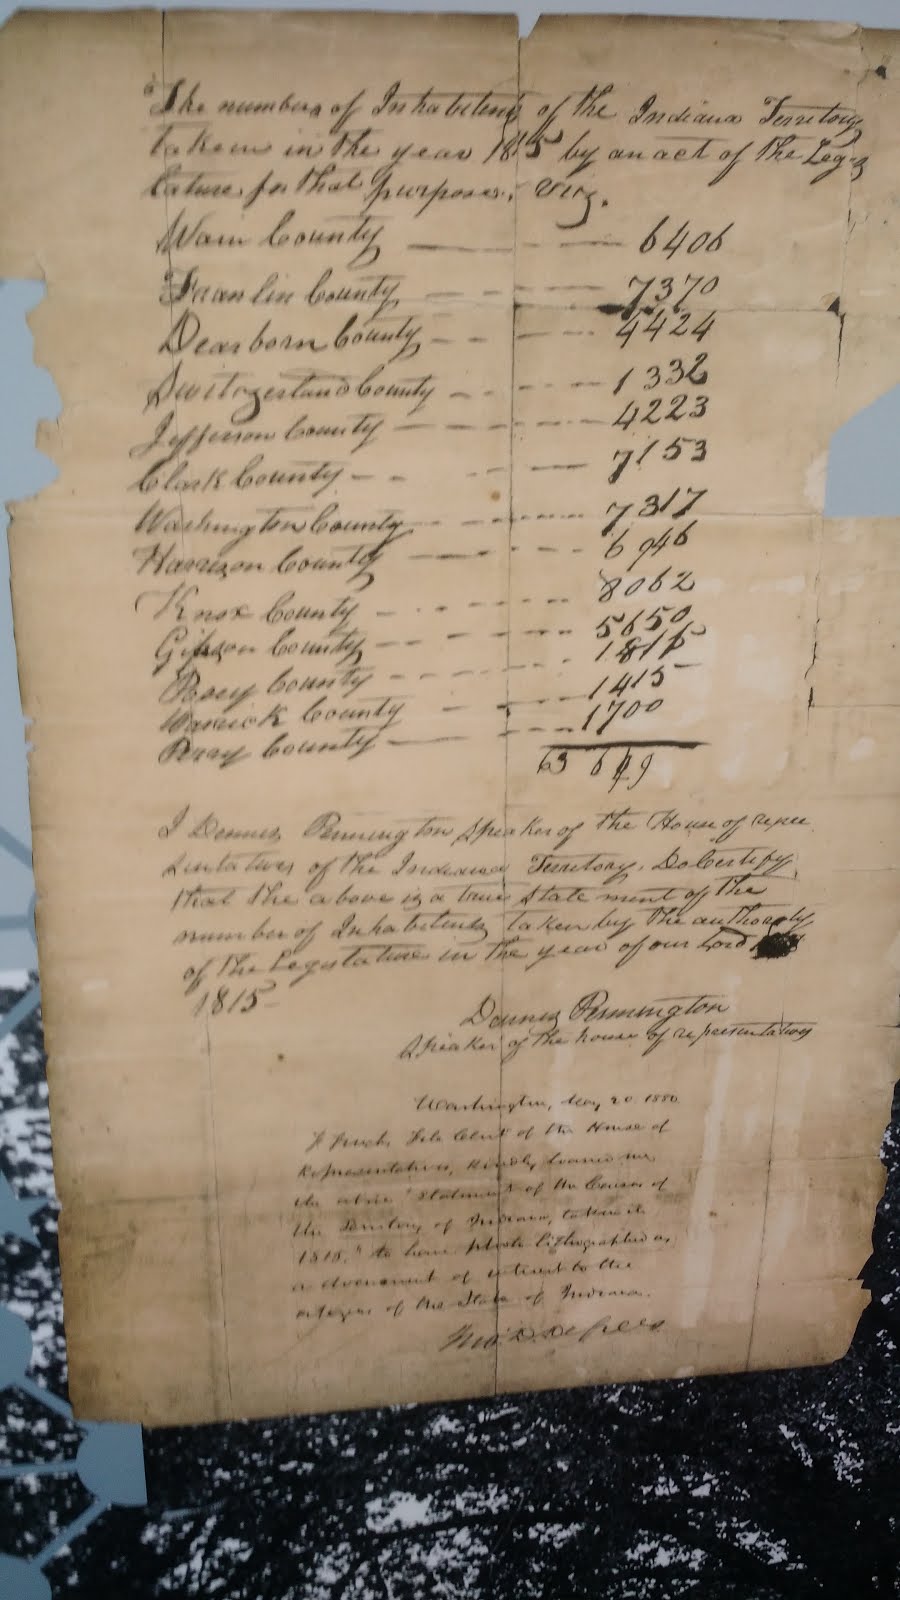 The numbers of Inhabitents of the Indiana Territory
taken in the year 1815 by an act of the Legis
lature for that purpose. Viz.
Wain County 6406
Franlin County 7370
Dearborn County 4424
Switzerland County 1332
Jefferson County 4223
Clark County 7153
Washington County 7317
Harrison County 6946
Knox County 8062
Gibson County 5650
Posey County
Warrick County 1415
Perry County 1700
I Dennis Pennington Speaker of the House of repre
sentatives of the Indiana Territory. Do Certify
that the above is a true State ment of the
number of Inhabitents taken by the authority
of the Legislature in the year of our Lord
1815
Dennis Pennington
Speaker of the house of representatives
Washington, May 20 1880
Clerk of the House of
Representatives, kindly loaned me
the above "statement of the Census of
the Territory of Indiana, taken in
to have photo lithographed as
a document of interest to the
citizens of the State of Indiana.
Jno. D. Defrees